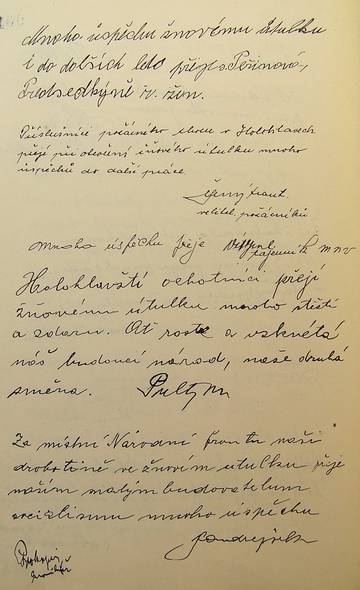 Mnoho úspěchu žňovému útulku
i do dalších let přeje Peřinová,
Předsedkyně v. žen.
Příslušníci požárního sboru v Holohlavech
přejí při otevření žňového útulku mnoho
úspěchů do další práce.
Černý Frant.
velitel požárníků
Mnoho úspěchu přeje tajemník MNV
Holohlavští ochotníci přejí
žňovému útulku mnoho štěstí
a zdaru. Ať roste a vzkvétá
náš budoucí národ, naše druhá
směna.
Za místní Národní frontu naší
drobotině ve žňovém útulku přeje
našim malým budovatelům
socializmu mnoho úspěchu
Prokopij
kronikář